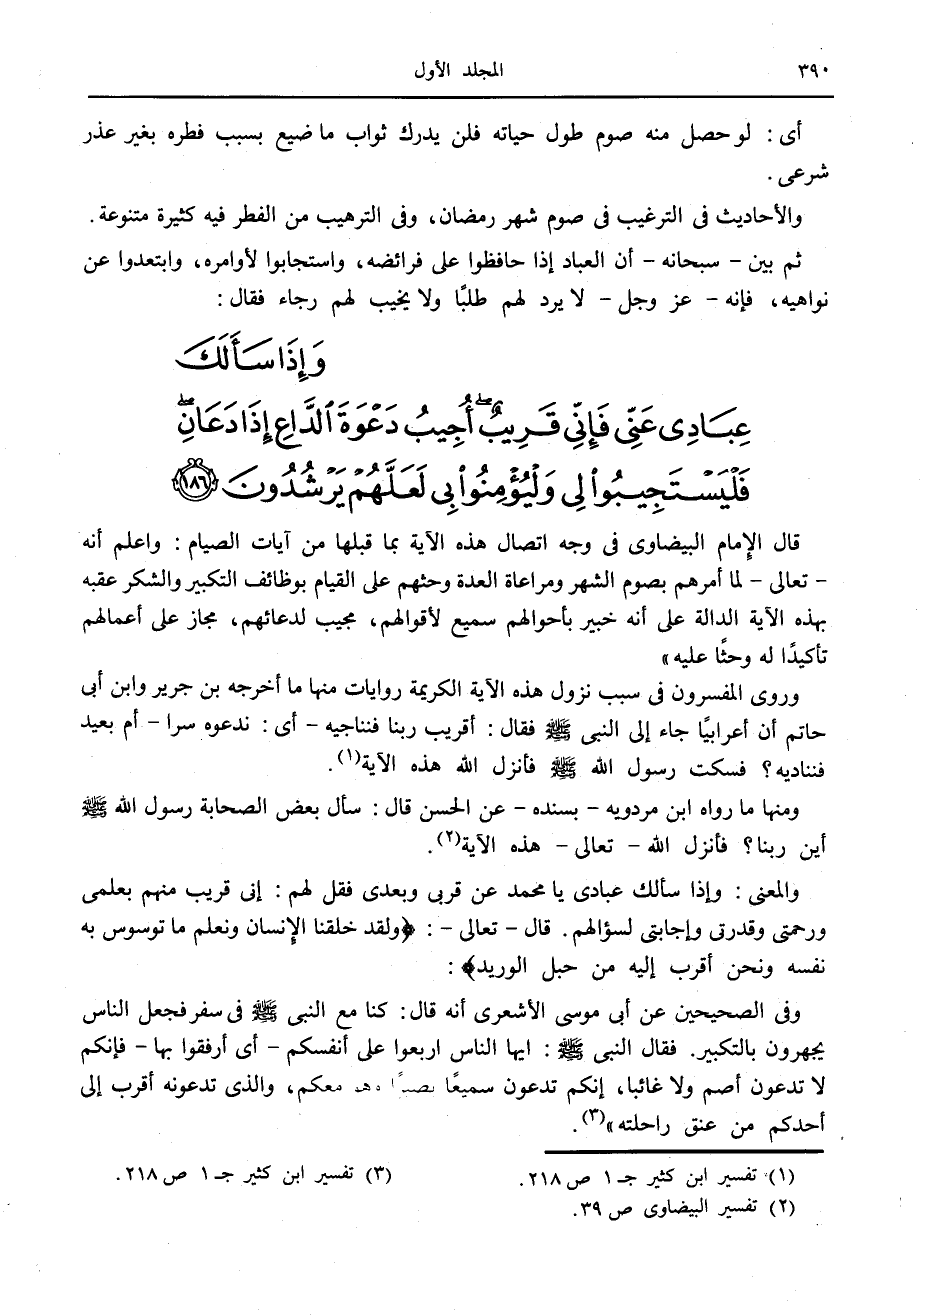 ٣٩٠ المجلد الأول
أى : لو حصل منه صوم طول حياته فلن يدرك ثواب ما ضيع بسبب فطره بغير عذر
شرعى .
والأحاديث فى الترغيب فى صوم شهر رمضان، وفى الترهيب من الفطر فيه كثيرة متنوعة .
ثم بين – سبحانه – أن العباد إذا حافظوا على فرائضه، واستجابوا لأوامره، وابتعدوا عن
نواهيه، فإنه – عز وجل – لا يرد لهم طلبًا ولا يخيب لهم رجاء فقال :
وَإِذَا سَأَلَكَ
عِبَادِى عَنِّى فَإِنِّى قَرِيبٌ ۖ أُجِيبُ دَعْوَةَ ٱلدَّاعِ إِذَا دَعَانِ ۖ
فَلْيَسْتَجِيبُوا۟ لِى وَلْيُؤْمِنُوا۟ بِى لَعَلَّهُمْ يَرْشُدُونَ ١٨٦
قال الإمام البيضاوى فى وجه اتصال هذه الآية بما قبلها من آيات الصيام : واعلم أنه
– تعالى – لما أمرهم بصوم الشهر ومراعاة العدة وحثهم على القيام بوظائف التكبير والشكر عقبه
بهذه الآية الدالة على أنه خبير بأحوالهم سميع لأقوالهم، مجيب لدعائهم، مجاز على أعمالهم
تأكيدًا له وحثًا عليه»
وروى المفسرون فى سبب نزول هذه الآية الكريمة روايات منها ما أخرجه بن جرير وابن أبى
حاتم أن أعرابيًا جاء إلى النبى ﷺ فقال : أقريب ربنا فنناجيه – أى : ندعوه سرا – أم بعيد
فنناديه ؟ فسكت رسول الله ﷺ فأنزل الله هذه الآية(١).
ومنها ما رواه ابن مردويه – بسنده – عن الحسن قال : سأل بعض الصحابة رسول الله ﷺ
أين ربنا ؟ فأنزل الله – تعالى – هذه الآية(٢).
والمعنى : وإذا سألك عبادى يا محمد عن قربى وبعدى فقل لهم : إنى قريب منهم بعلمى
ورحمتى وقدرتى وإجابتى لسؤالهم. قال – تعالى – : ﴿ولقد خلقنا الإنسان ونعلم ما توسوس به
نفسه ونحن أقرب إليه من حبل الوريد﴾ :
وفى الصحيحين عن أبى موسى الأشعرى أنه قال : كنا مع النبى ﷺ فى سفر فجعل الناس
يجهرون بالتكبير. فقال النبى ﷺ : ايها الناس اربعوا على أنفسكم – أى أرفقوا بها – فإنكم
لا تدعون أصم ولا غائبا، إنكم تدعون سميعًا معكم، والذى تدعونه أقرب إلى
أحدكم من عنق راحلته»(٣).
(١) تفسير ابن كثير جـ ١ ص ٢١٨.
(٢) تفسير البيضاوى ص ٣٩.
(٣) تفسير ابن كثير جـ ١ ص ٢١٨.